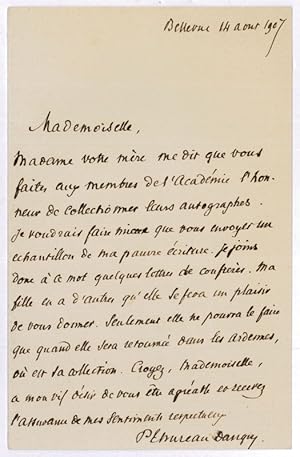 Bellevue 14 aout 1907
Mademoiselle,
Madame votre mère me dit que vous
faites aux membres de l'Académie l'hon-
neur de collectionner leurs autographes.
Je voudrais faire mieux que vous envoyer un
échantillon de ma pauvre écriture. Je joins
donc à ce mot quelques lettres de confrères. Ma
fille en a d'autres qu'elle se fera un plaisir
de vous donner. Seulement elle ne pourra le faire
que quand elle sera retournée dans les Ardennes,
où est sa collection. Croyez, Mademoiselle,
a mon vif désir de vous être agréable et recevez
l'assurance de mes sentiments respectueux
P Thureau Dangin